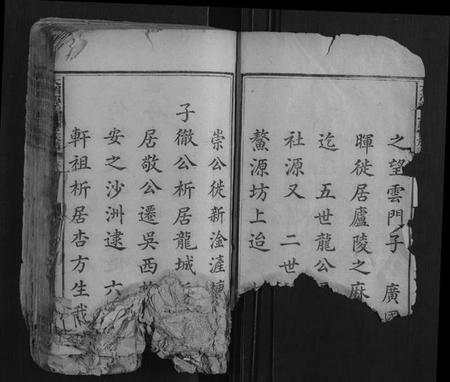 之望雲門子 廣
暉徙居廬陵之麻
迄 五世龍公
社源又 二世
鰲源坊上迨
崇公徙新淦漄
子徽公析居龍城
居敬公遷吳西
安之沙洲逮 六
軒祖析居杏方生